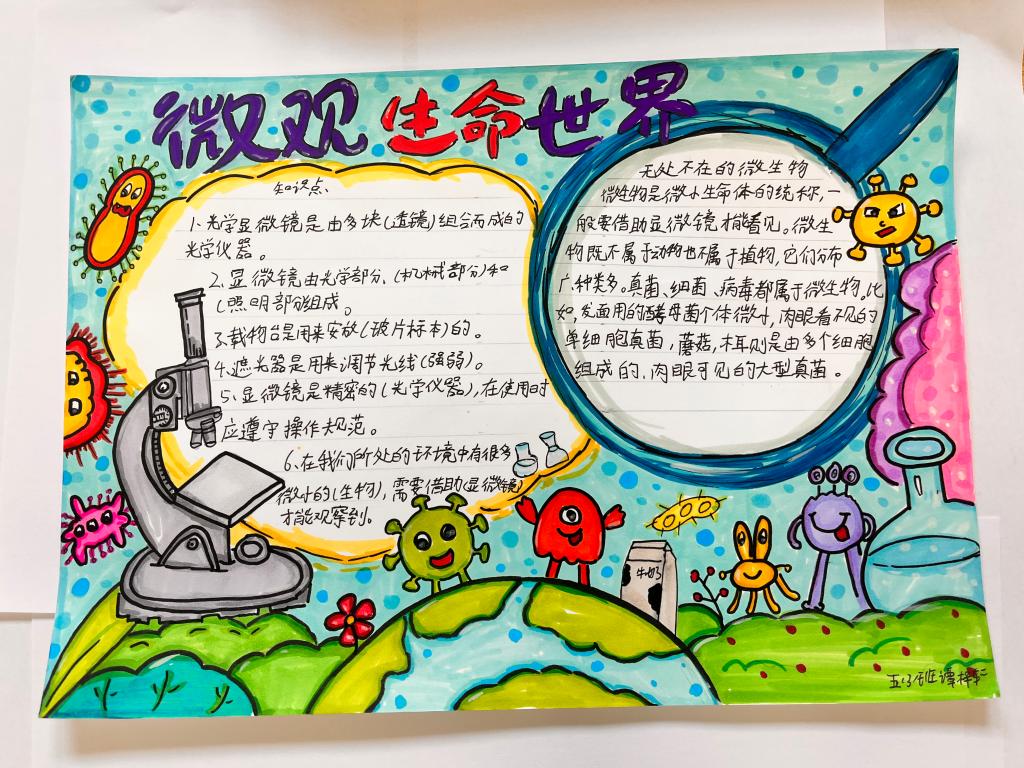 微观生命世界
知识点、
1、光学显微镜是由多块(透镜)组合而成的
光学仪器。
2、显微镜由光学部分、(机械部分)和
(照明部分)组成。
3、载物台是用来安放(玻片标本)的。
4、遮光器是用来调节光线(强弱)。
5、显微镜是精密的(光学仪器),在使用时
应遵守操作规范。
6、在我们所处的环境中有很多
微小的(生物),需要借助(显微镜)
才能观察到。
无处不在的微生物
微生物是微小生命体的统称,一
般要借助显微镜才能看见。微生
物既不属于动物也不属于植物,它们分布
广、种类多。真菌、细菌、病毒都属于微生物。比
如,发面用的酵母菌个体微小,肉眼看不见的
单细胞真菌,蘑菇,木耳则是由多个细胞
组成的、肉眼可见的大型真菌。
牛奶
五(3)班谭梓轩